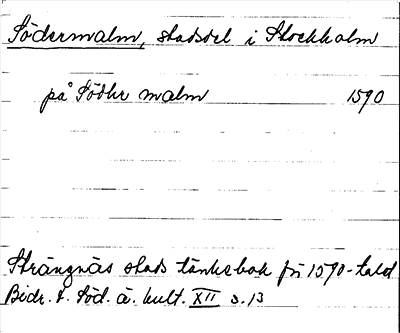 Södermalm, stadsdel i Stockholm
på Södhr malm 1590
Strängnäs stads tänkebok frn 1590-talet
Bidr. t. Söd. ä. kult. XII s. 13